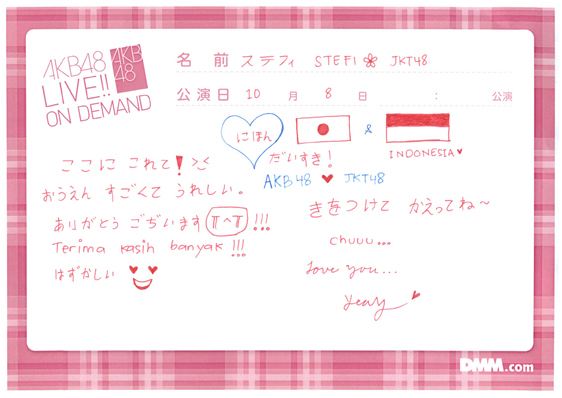 AKB48
LIVE!!
ON DEMAND
AKB
48
名前 ステフィ STEFI JKT48
公演日 10 月 8 日 : 公演
にほん & INDONESIA
だいすき!
AKB48 ♥ JKT48
ここに これて! >_<
おうえん すごくて うれしい。
ありがとう ございます (TT^TT) !!!
Terima kasih banyak !!!
はずかしい
きをつけて かえってね~
chuuu...
love you...
yeay
DMM.com